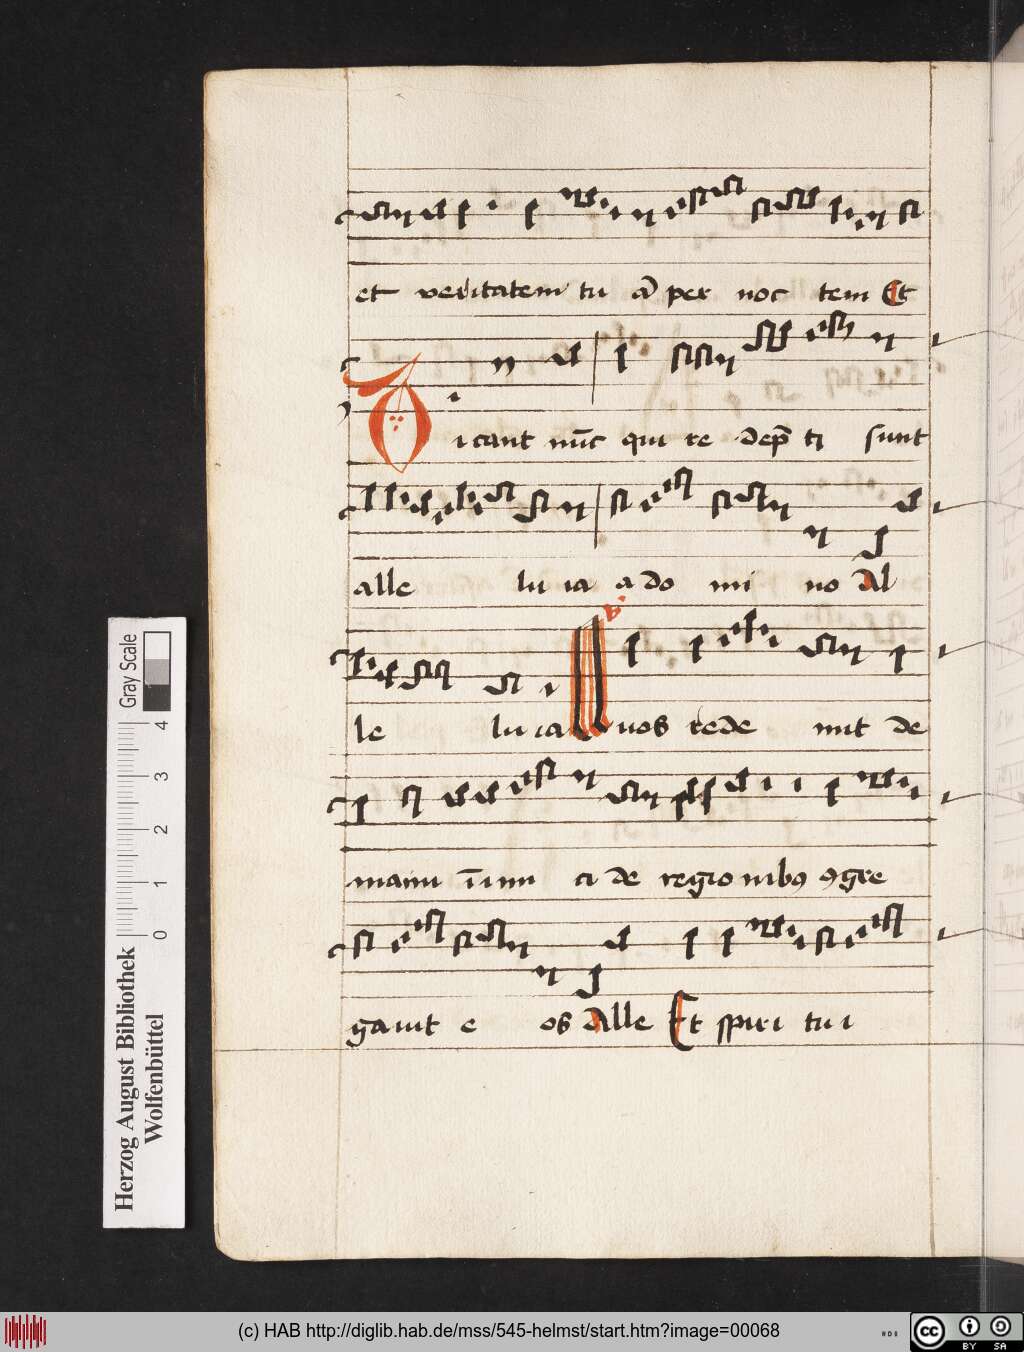 et veritatem tu ā per noc tem Et
Dicant nūc qui re dep̄ ti sunt
alle lu ia a do mi no Al
le lu ia Quos rede mit de
manu īimi ci de regio nibꝯ ꝯgre
gauit e os Alle Et spiri tu i
Gray Scale
0 1 2 3 4
Herzog August Bibliothek
Wolfenbüttel
(c) HAB http://diglib.hab.de/mss/545-helmst/start.htm?image=00068
cc BY SA